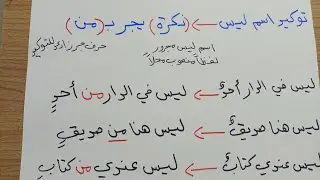 توكيد اسم ليس ← (نكرة) يجر ب (من)
اسم ليس مجرور لفظاً منصوب محلاً
حرف جر زائد للتوكيد
ليس في الدار أحدٌ ← ليس في الدار من أحدٍ
ليس هنا صديقٌ ← ليس هنا من صديقٍ
ليس عندي كتابٌ ← ليس عندي من كتابٍ